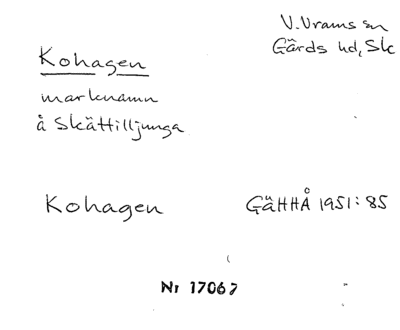 V. Vrams sn
Gärds hd, Sk
Kohagen
marknamn
å Skättilljunga
Kohagen
GäHHÅ 1951:85
Nr 17067